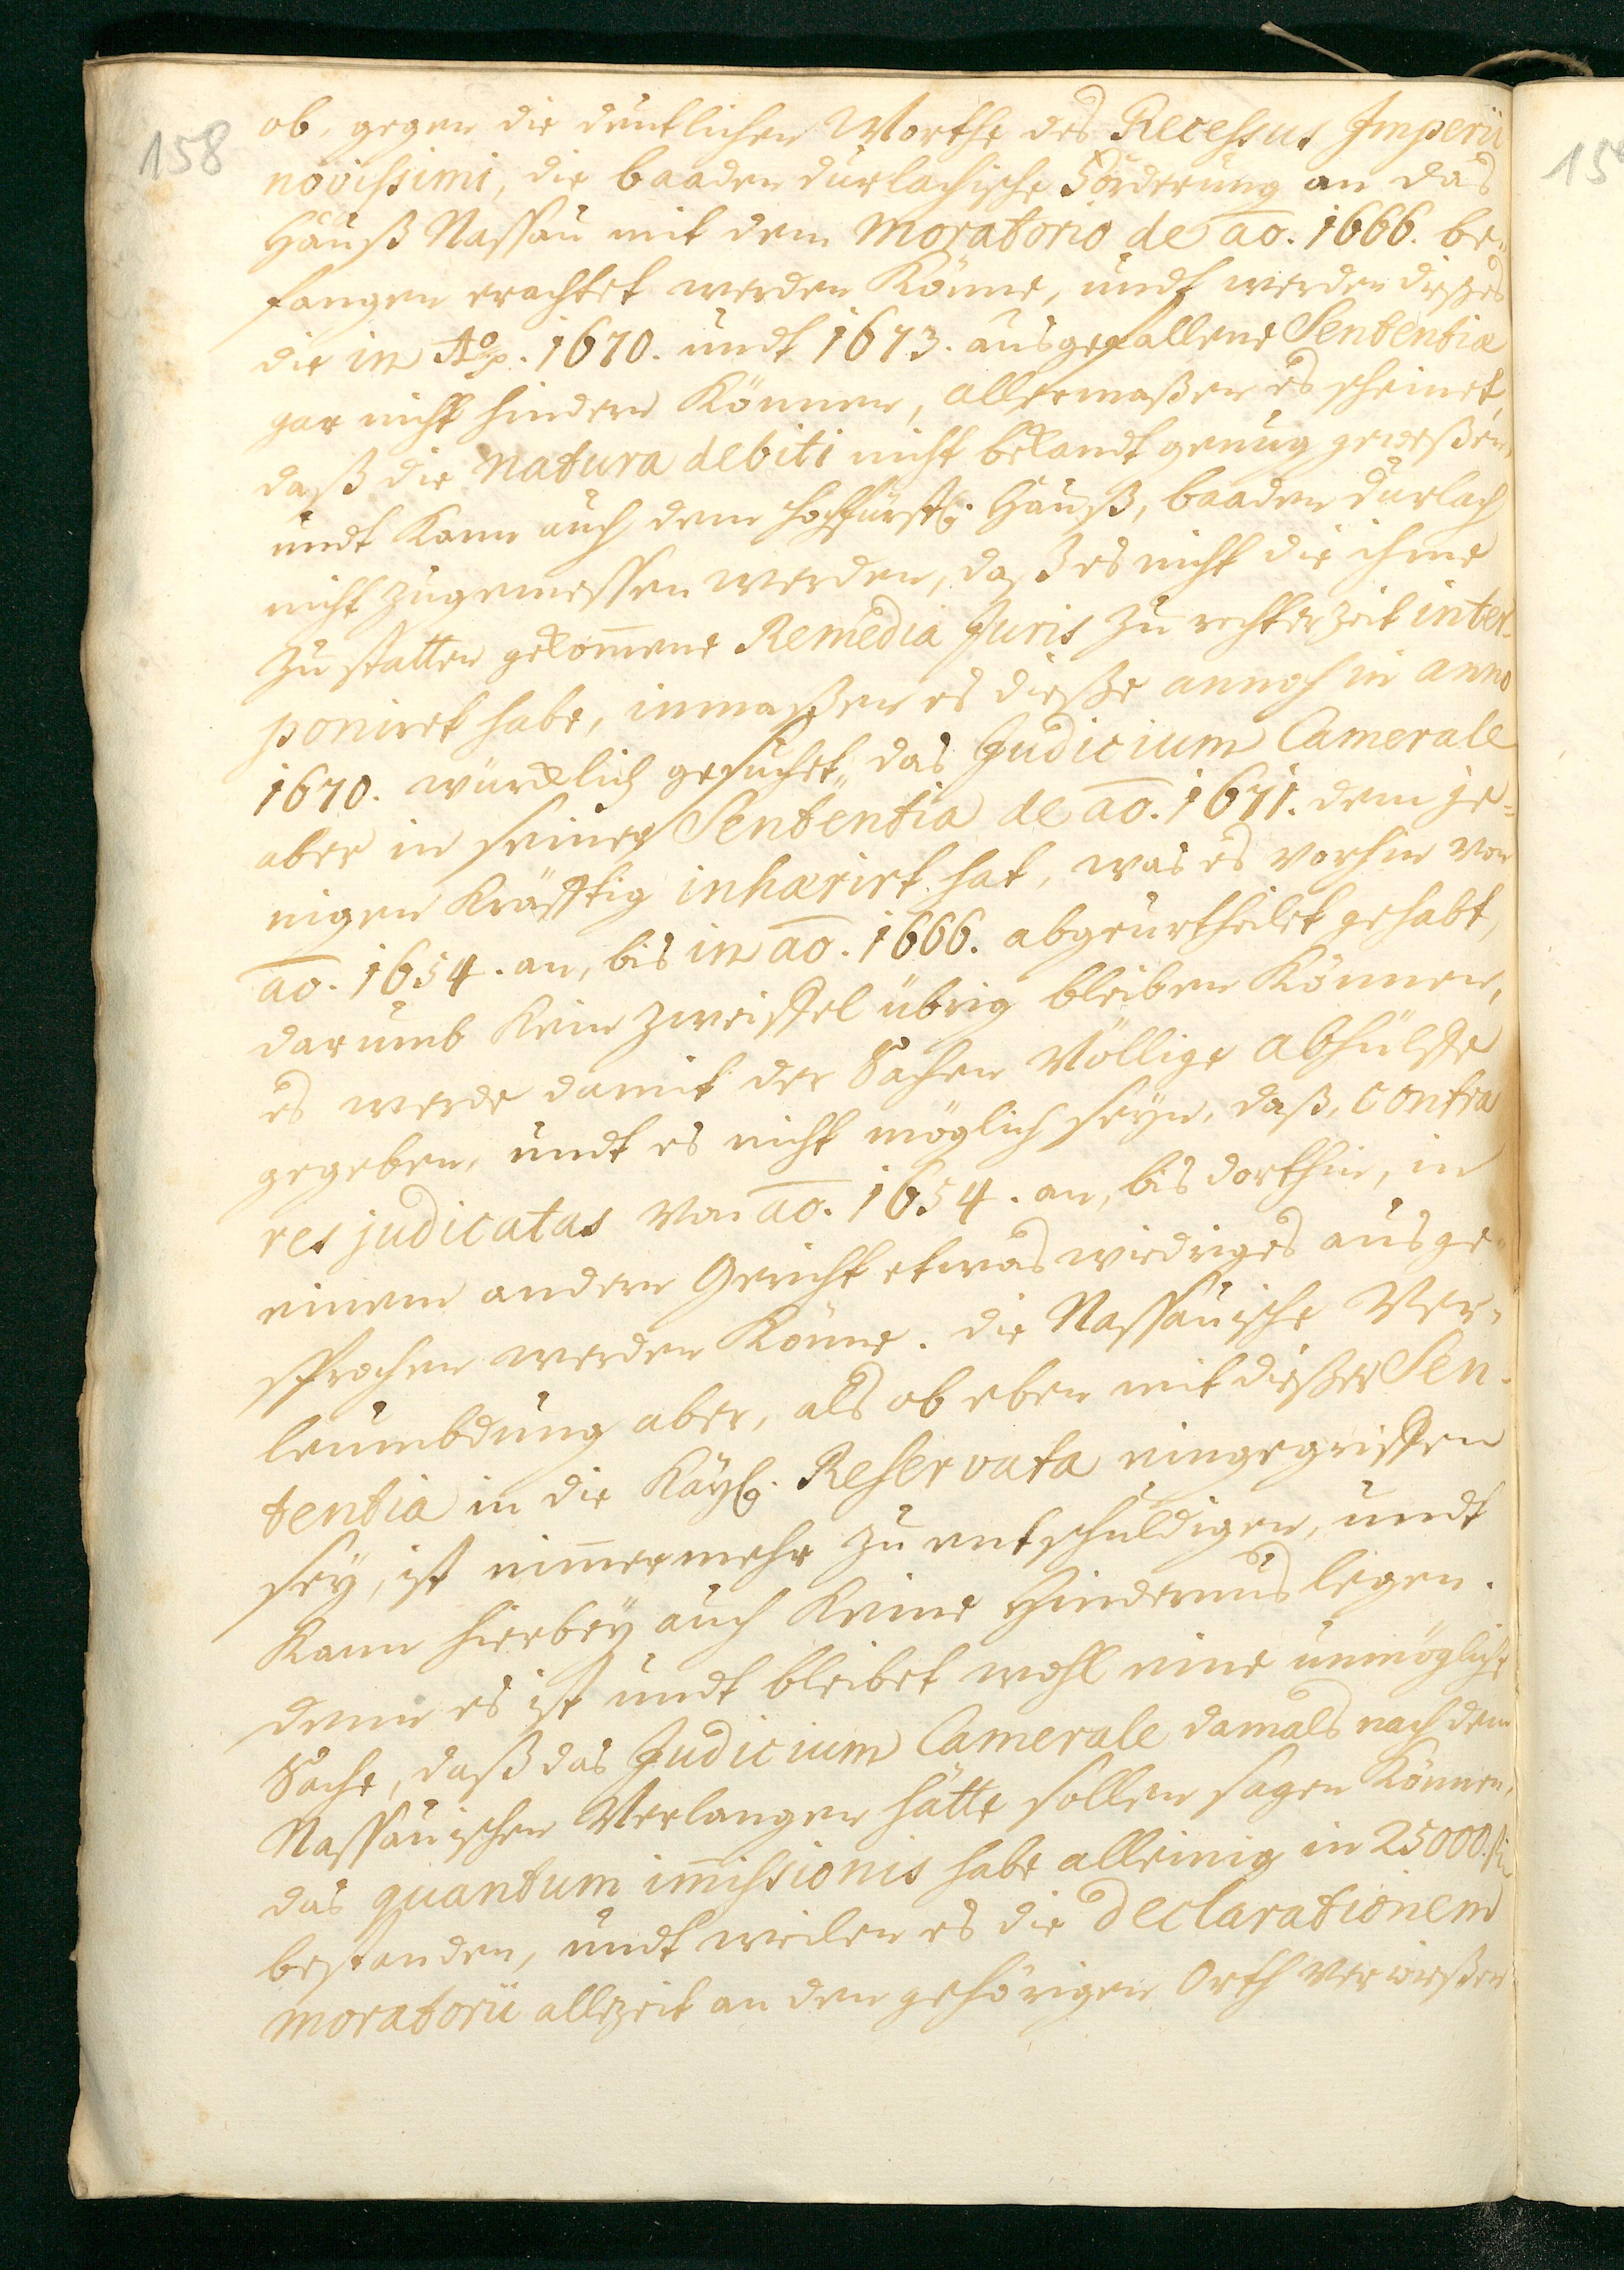 158
ob, gegen die deutlichen Worthe des Recessus Imperii
novissimi, die baaden durlachische Forderung an das
Hauß Nassau mit dem Moratorio de ao. 1666. be-
fangen erachtet werden Könne, undt werden dießes
die in Ao. 1670. undt 1673. ausgefallene Sententiæ
gar nicht hindern Können, allermaßen es scheinet,
daß die natura debiti nicht bekandt genug geweßen,
undt Kann auch dem hochfürstl. Hauß, baaden durlach
nicht zugemessen werden, daß es nicht die ihme
zu statten gekom̅ene Remedia Juris zu rechter zeit inter-
poniret habe, inmaßen es dieße annoch in anno
1670. würcklich gesuchet, das Judicium Camerale
aber in seiner Sententia de ao. 1671. dem je-
nigen Kräfftig inhærirt hat, was es vorhin von
ao. 1654. an, bis in ao. 1666. abgeurtheilet gehabt,
darumb Kein zweiffel übrig bleiben Können,
es werde damit der Sachen Völlige abhülffe
gegeben, undt es nicht möglich seyn, daß, contra
res judicatas von ao. 1654. an, bis dorthin, in
einem andern Gericht etwas wiedriges ausge-
sprochen werden Könne. die Nassauische Ver-
leumbdung aber, als ob eben mit dießer Sen-
tentia in die Kayl. Reservata eingegriffen
sey, ist nim̅ermehr zu entschuldigen, undt
Kann hierbey auch Keine Hindernus legen.
denn es ist undt bleibet wohl eine unmögliche
Sache, daß das Judicium Camerale damals nach dem
Nassauischen Verlangen hätte sollen sagen Können,
das quantum im̅issionis habe alleinig in 25000. fl.
bestanden, undt weilen es die Declarationem
Moratorii allezeit an den gehörigen Orth verwießen
15